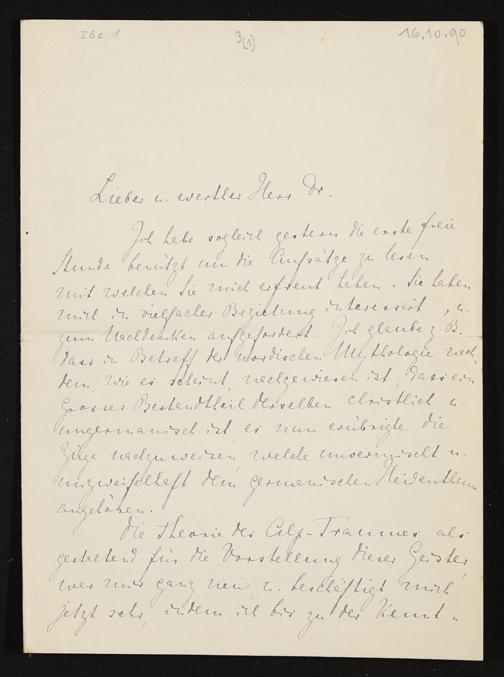 II B c 1
3(1)
16.10.90
Lieber u. werther Herr Dr.
Ich habe sogleich gestern die erste freie
Stunde benützt um die Aufsätze zu lesen
mit welchen Sie mich erfreut haben. Sie haben
mich in vielfacher Beziehung interessirt, u.
zum Nachdenken aufgefordert. Ich glaube z. B.
dass in Betreff der nordischen Mythologie nach
dem, wie es scheint, nachgewiesen ist, dass ein
grosser Bestandtheil derselben christlich u.
ungermanisch ist, es nun erübrigte die
Züge nachzuweisen, welche unvermischt u.
unzweifelhaft dem germanischen Heidenthum
angehören.
Die Theorie des Alp-Traumes als
gestaltend für die Vorstellung dieser Geister,
war mir ganz neu, u. beschäftigt mich
jetzt sehr, indem ich bis zu der Kennt-